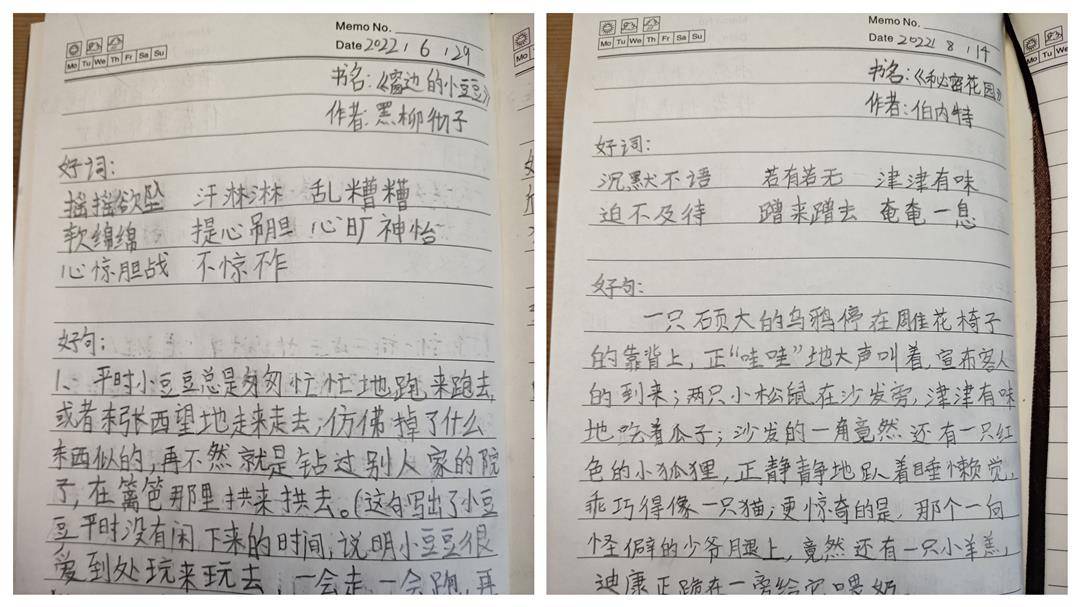 Memo No.
Mo Tu We Th Fr Sa Su
Date 2022 / 6 / 29
书名:《窗边的小豆豆》
作者:黑柳彻子
好词:
摇摇欲坠 汗淋淋 乱糟糟
软绵绵 提心吊胆 心旷神怡
心惊胆战 不惊不乍
好句:
1、平时小豆豆总是匆匆忙忙地跑来跑去,
或者东张西望地走来走去;仿佛掉了什么
东西似的,再不然就是钻过别人家的院
子,在篱笆那里拱来拱去。(这句写出了小豆
豆平时没有闲下来的时间,说明小豆豆很
爱到处玩来玩去,一会走,一会跑,再
Memo No.
Mo Tu We Th Fr Sa Su
Date 2022 / 8 / 14
书名:《秘密花园》
作者:伯内特
好词:
沉默不语 若有若无 津津有味
迫不及待 蹭来蹭去 奄奄一息
好句:
一只硕大的乌鸦停在雕花椅子
的靠背上,正“哇哇”地大声叫着,宣布客人
的到来;两只小松鼠在沙发旁,津津有味
地吃着瓜子;沙发的一角竟然还有一只红
色的小狐狸,正静静地趴着睡懒觉,
乖巧得像一只猫;更惊奇的是,那个一向
怪僻的少爷腿上,竟然还有一只小羊羔,
迪康正跪在一旁给它喂奶
Mo